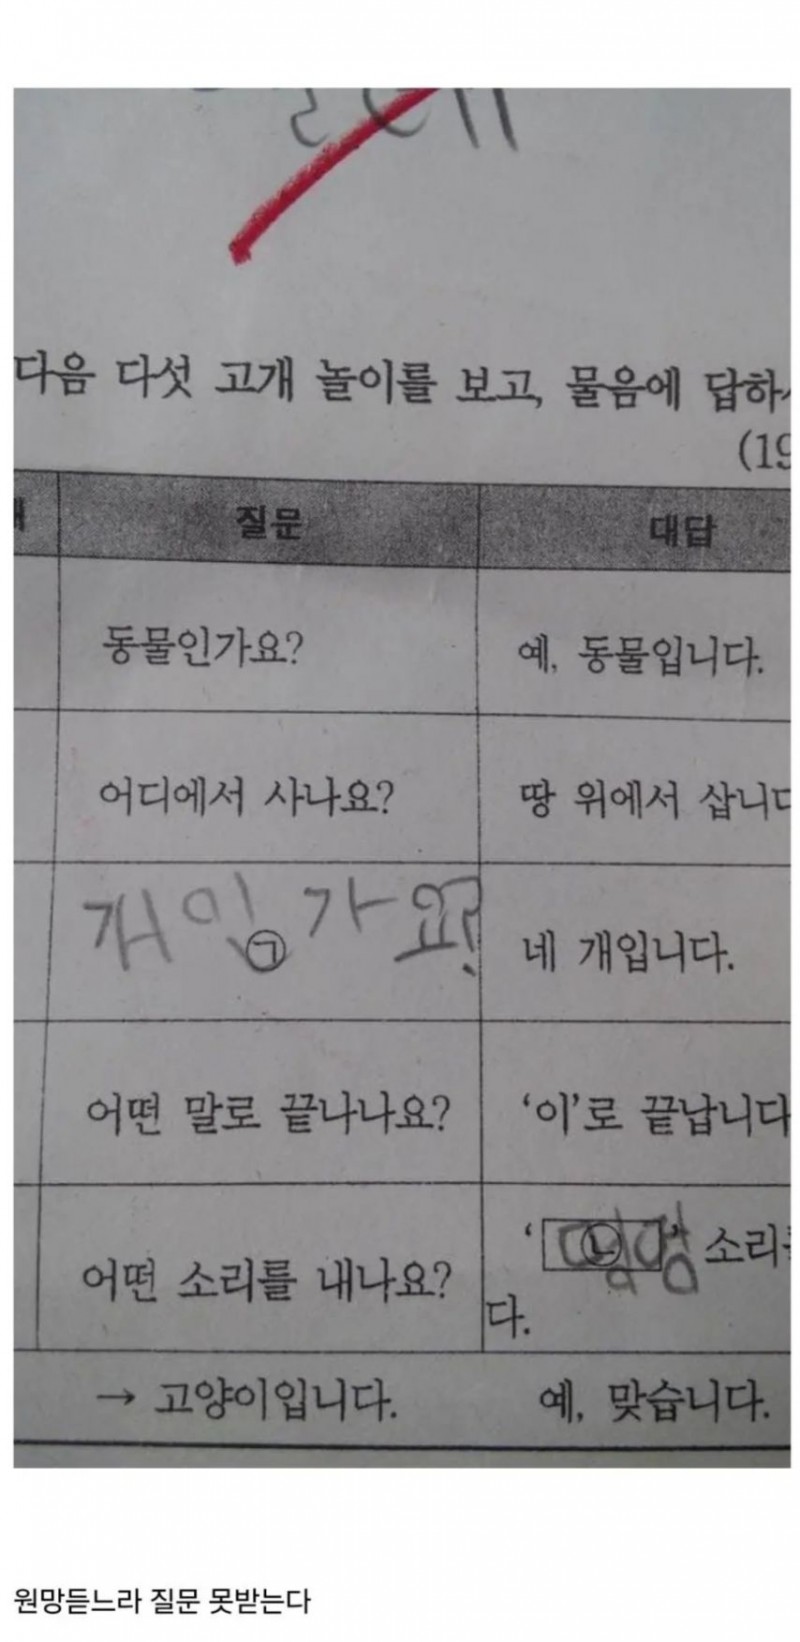 다음 다섯 고개 놀이를 보고, 물음에 답하
(19
질문 대답
동물인가요? 예, 동물입니다.
어디에서 사나요? 땅 위에서 삽니다
개인가요? ㉠ 네 개입니다.
어떤 말로 끝나나요? ‘이’로 끝납니다
어떤 소리를 내나요? ‘멍멍 ㉡’ 소리를
다.
→ 고양이입니다. 예, 맞습니다.
원망듣느라 질문 못받는다